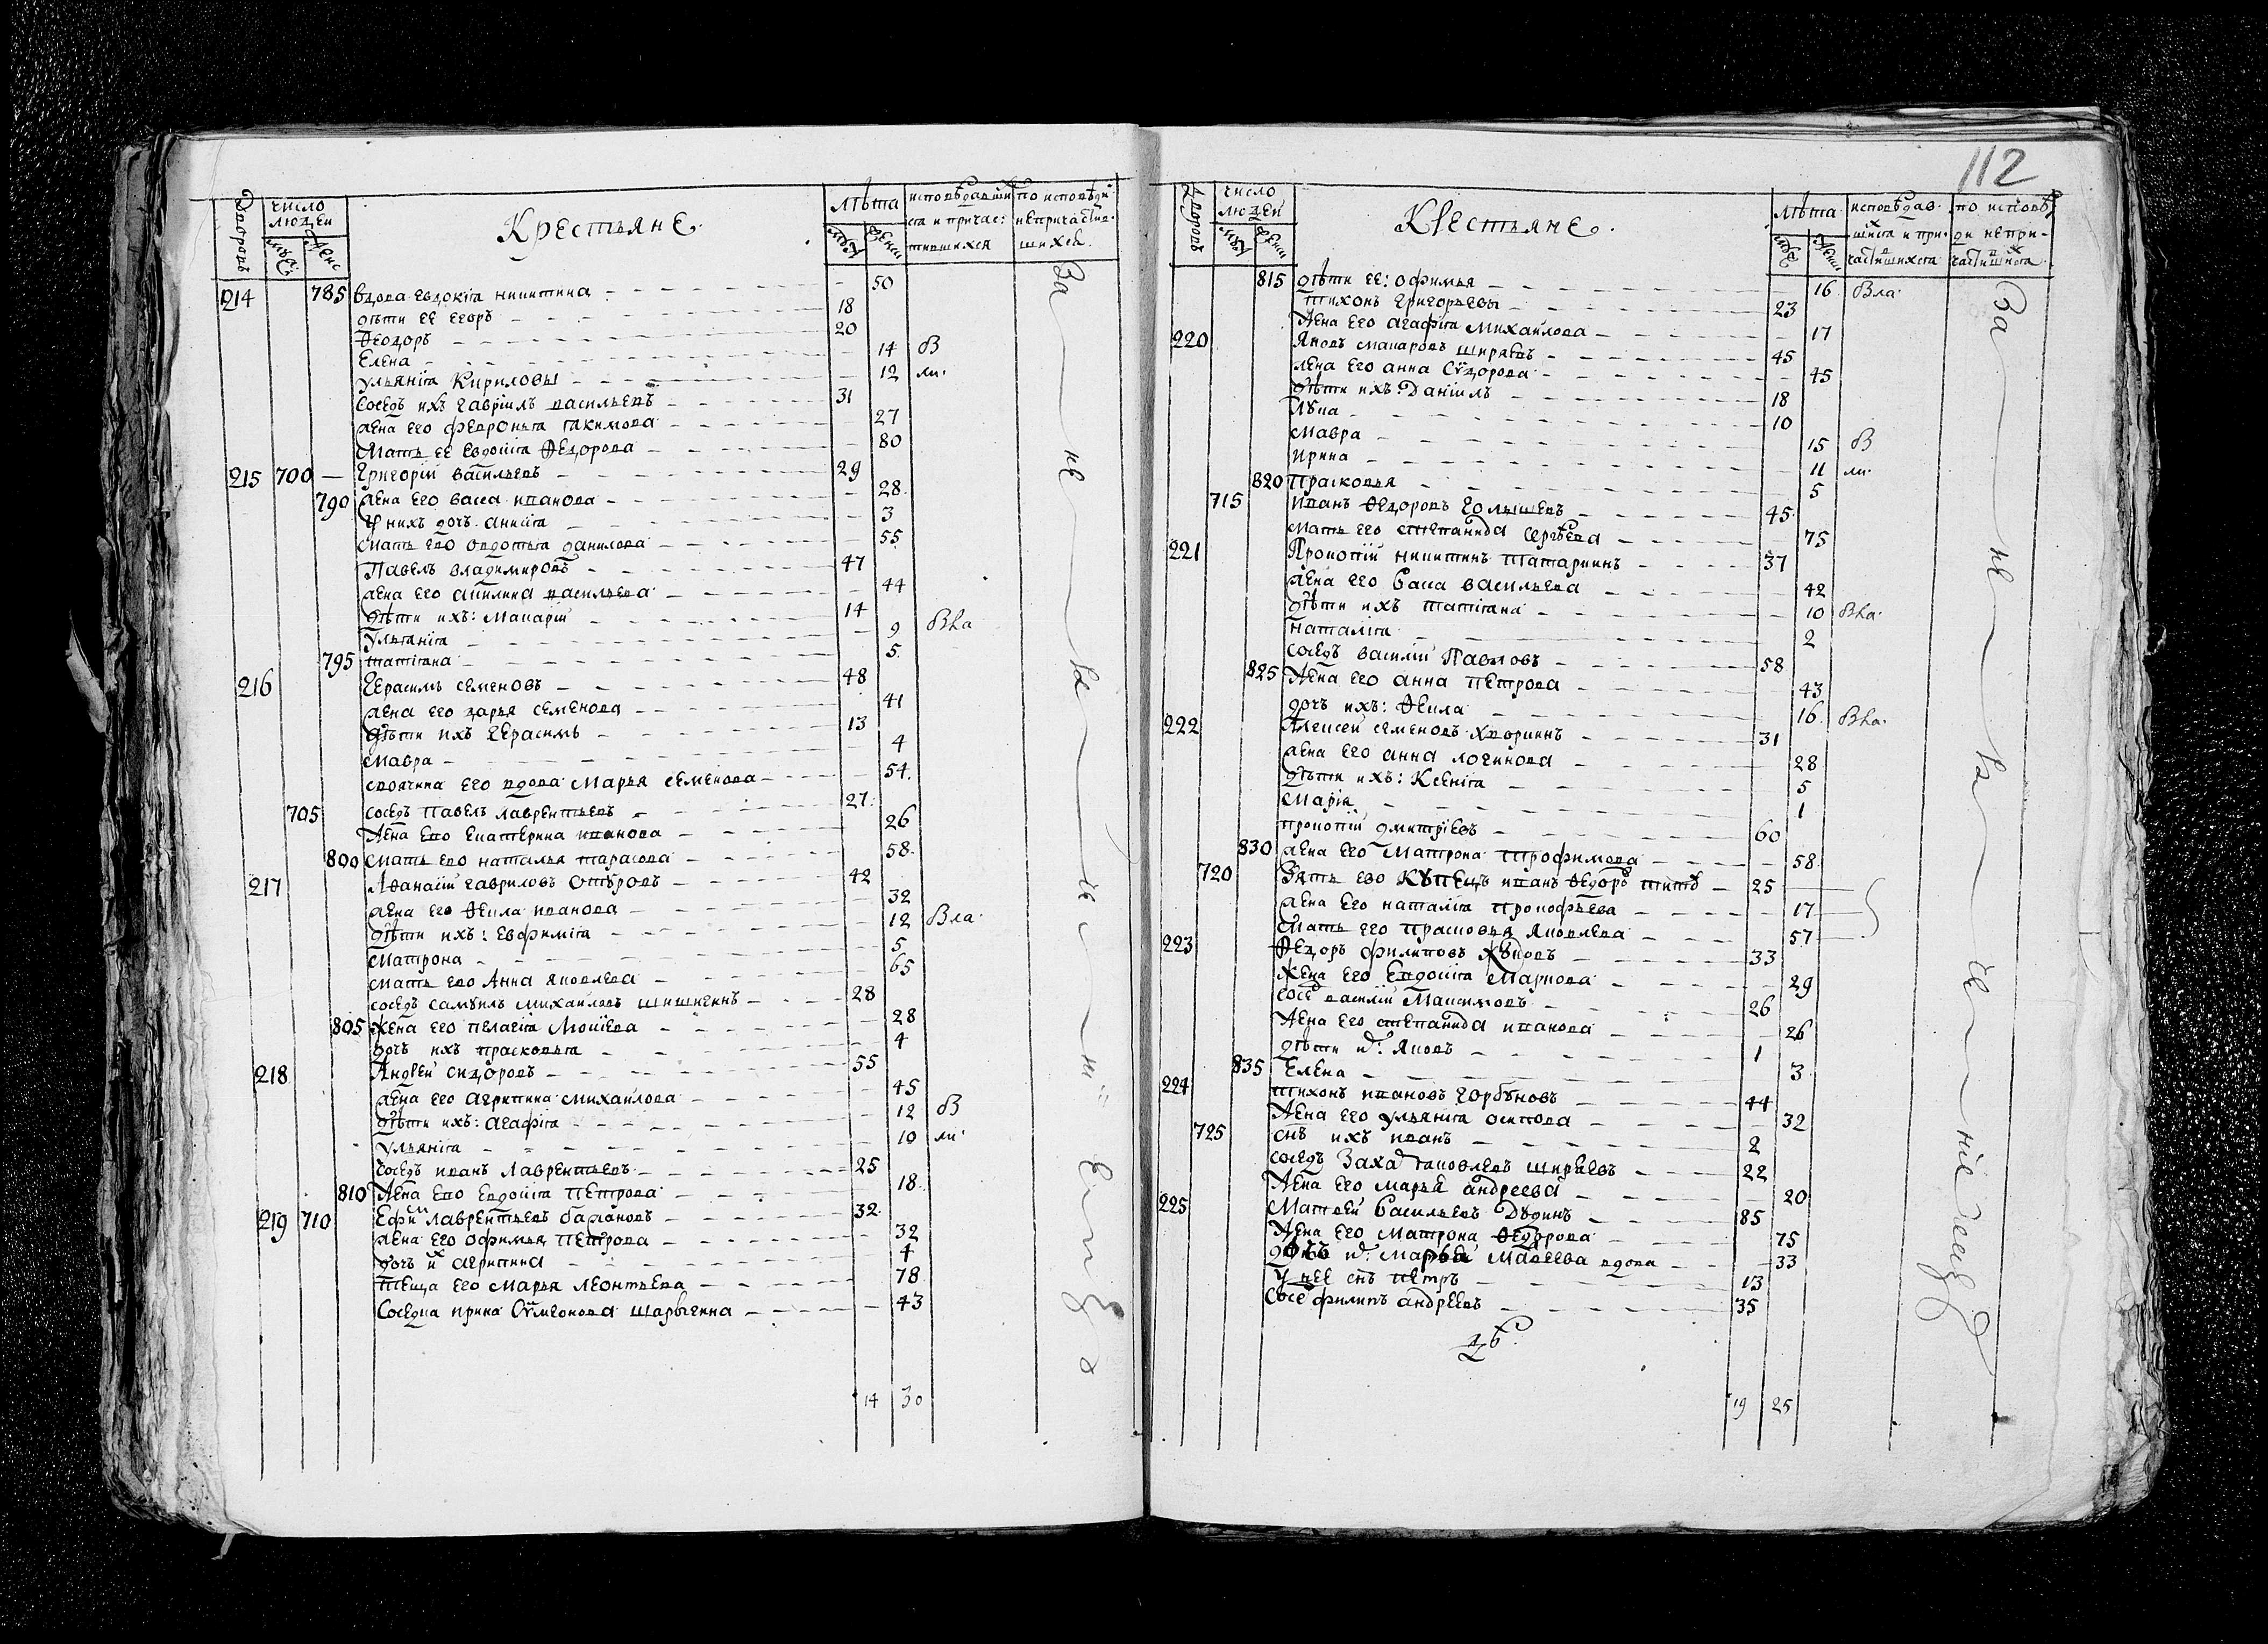 Дворовъ
число людей
Крестьяне.
лѣта
исповѣдавши
ся и причас:
тившихся
по исповѣди
непричастив-
шихся
214 785 вдова Евдокіа никитина 50
дѣти ее егоръ 18
Ѳеодоръ 20
Елена 14 В
Ульяніа Кириловы 12 ли.
Соседъ ихъ гавріилъ васильевъ 31
жена его февроньа іакимова 27
Мать ее Евдокіа Ѳедорова 80
215 700 Григорій васильевъ 29
790 жена его васса иванова 28
У нихъ дочь анисіа 3
мать ево овдотьа данилова 55
Павелъ владимировъ 47
жена его акилина васильева 44
дѣти ихъ: Макарій 14
Ульяніа 9 Вла
795 татіана 5
216 Герасимъ семеновъ 48
жена его дарья семенова 41
дѣти ихъ Герасимъ 13
мавра 4
своячина его вдова Марья семенова 54
705 соседъ павелъ лаврентьевъ 27
жена ево екатерина иванова 26
800 мать его наталья тарасова 58
217 Аѳанасій гавриловъ 42
жена его Ѳекла иванова 32
дѣти ихъ: евфиміа 12 Вла
матрона 5
мать ево Анна яковлева 65
соседъ самуилъ михаиловъ шишигинъ 28
805 жена его пелагіа Мосіева 28
дочь ихъ прасковьа 4
218 Андрей сидоровъ 55
жена его агрипина михаилова 45
дѣти ихъ: агафіа 12 В
ульяніа 10 ли
соседъ иванъ лаврентьевъ 25
810 жена ево Евдокіа петрова 18
219 710 Ефим лаврентьевъ 32
жена его Офимья петрова 32
дочь их агрипина 4
теща его марья леонтьева 78
Соседка ирина Сѵмеонова шарыгина 43
14 30
112
Дворовъ
число людей
Крестьяне.
лѣта
исповѣдав-
шихся и при-
частившихся
по исповѣ
ди непри-
частившихся
815 дѣти ее: офимья 16 Вла
тихонъ григорьевы 23
жена его агафіа михаилова 17
220 Яковъ макаровъ ширяевъ 45
жена его анна Сѵдорова 45
дѣти ихъ: Даніилъ 18
лука 10
мавра 15 В
ирина 11 ли
820 прасковья 5
715 иванъ Ѳедоровъ голышевъ 45
мать его степанида сергѣева 75
221 Прокопій никитинъ татаринъ 37
жена его васса васильева 42
дѣти ихъ татіана 10 Вла
наталіа 2
соседъ василій павловъ 58
825 жена его анна петрова 43
дочь ихъ: Ѳекла 16 Вла
222 Алексей семеновъ хворинъ 31
жена его анна логинова 28
дѣти ихъ: Ксеніа 5
марія 1
прокопій дмитріевъ 60
830 жена его матрона трофимова 58
720 Зять ево купецъ иванъ Ѳедоръ 25
жена его наталіа прокофьева 17
мать его прасковья яковлева 57
223 Ѳедоръ филиповъ 33
жена его Евдокіа Маркова 29
сосе василій Максимовъ 26
жена его степанида иванова 26
дѣти их: яковъ 1
835 Елена 3
224 тихонъ ивановъ горбуновъ 44
жена его ульяніа осипова 32
725 снъ ихъ иванъ 2
соседъ Заха яковлевъ ширяевъ 22
жена его марья андреева 20
225 Матвей васильевъ Дудинъ 85
жена его матрона Ѳедорова 75
дочь их: марья вдова 33
у нее снъ петръ 13
сосе филипъ андреевъ 35
19 25